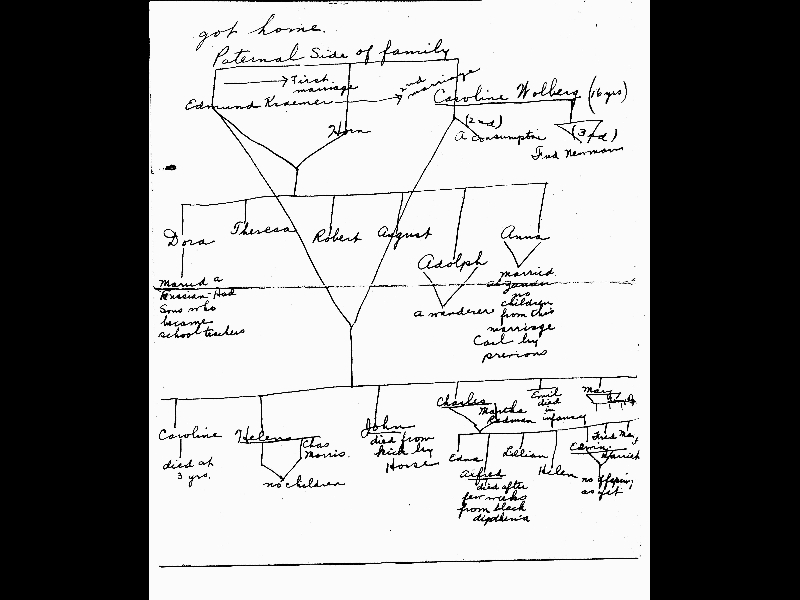 got home.
Paternal Side of family
First marriage
2nd marriage
Edmund Kraemer
Caroline Wolberg (16 yrs)
Horn
(2nd)
A consumptive
(3rd)
Fred Newmann
Dora
Theresa
Robert
August
Adolph
Anna
Married a
Russian - Had
Sons who
became
school teachers
a wanderer
married
no
children
from this
marriage
by
previous
Caroline
died at
3 yrs.
Helena
Chas
Morris.
no children
John
died from
kick by
Horse
Charles
Martha
Redman
Emil
died
in
infancy
Mary
Edna
Alfred
died after
few weeks
from black
diptheria
Lillian
Helen
Fred
Edwin
no offspring
as yet